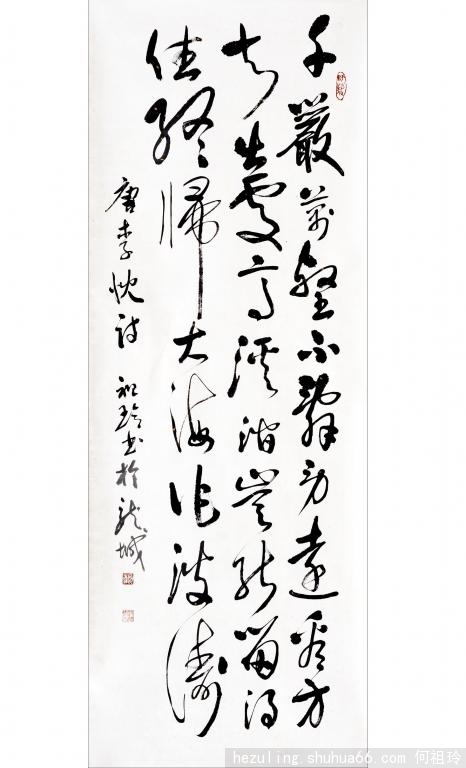 千嚴萬壑不辭勞遠看方
知出處高溪澗豈能留得
住終歸大海作波濤
唐李忱詩 祖玲書於龍城
hezuling.shuhua66.com 何祖玲